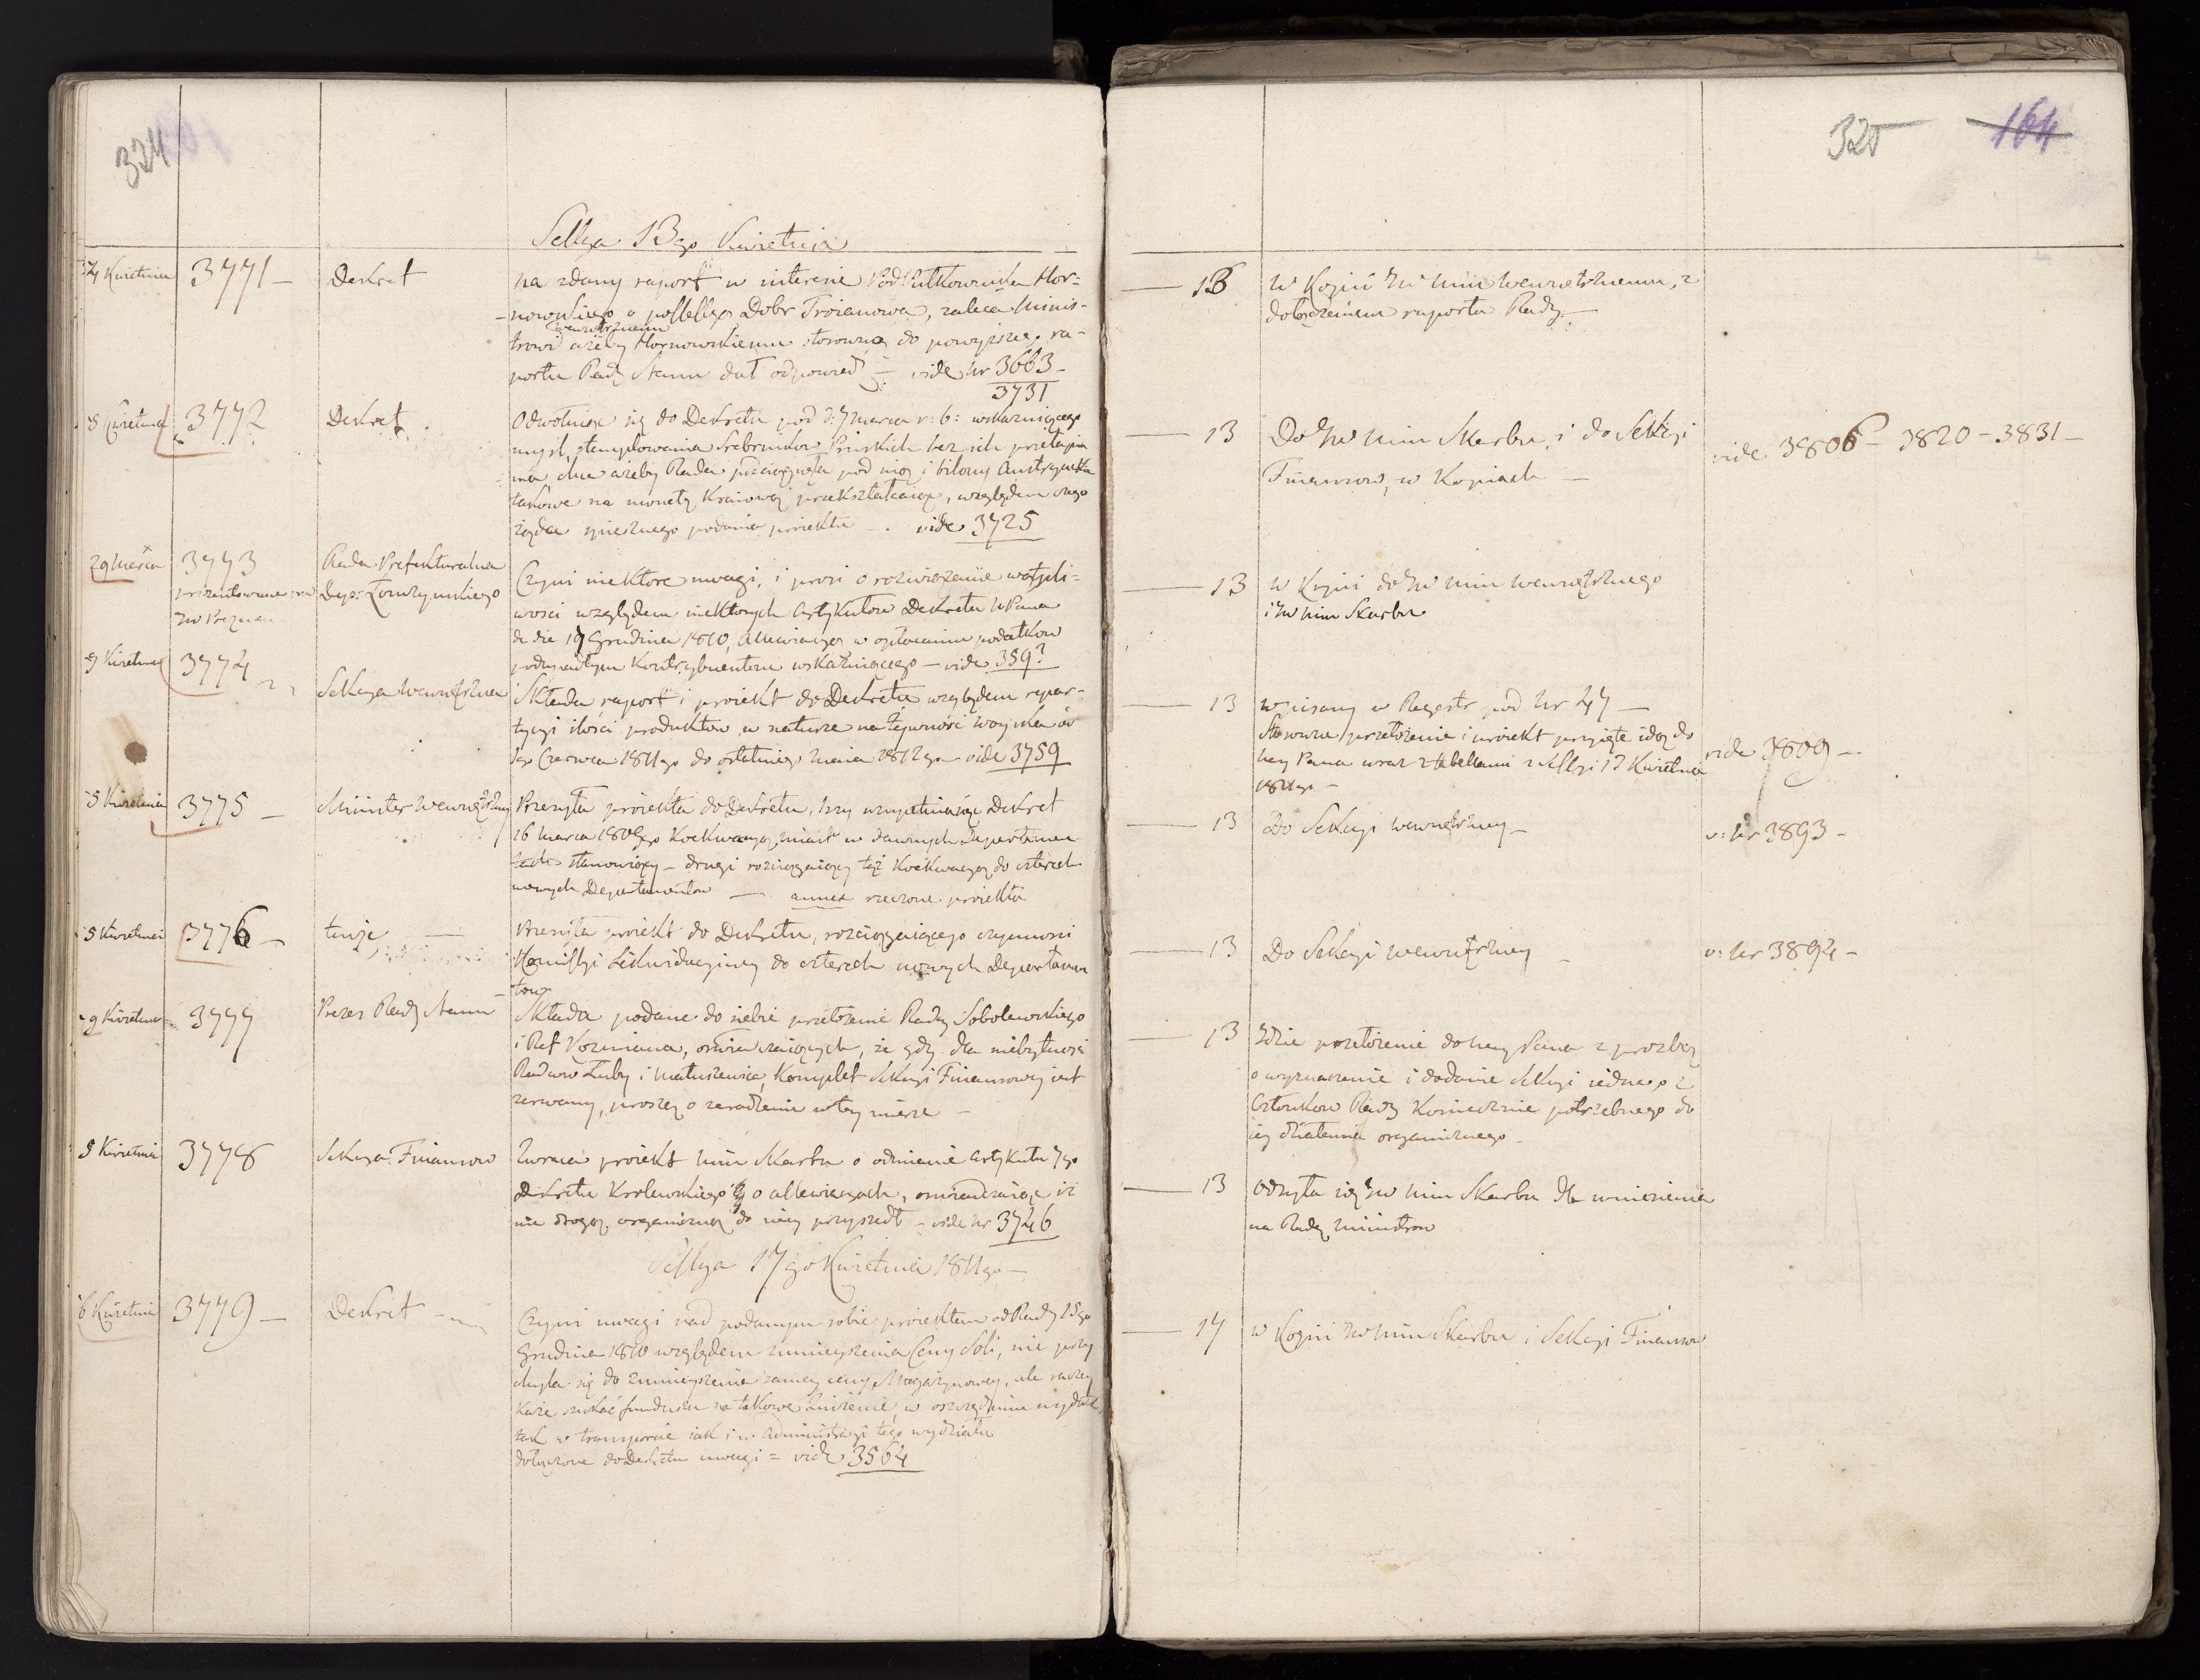 324
Sessya 13go Kwietnia
4 Kwietnia 3771 — Dekret
na zdany raport w interesie Podpułkownika Hor=
nowskiego o possessyą Dobr Troianowa, zaleca Minis-
wewnętrznemu
trowi ażeby Hornowskiemu stosowną do powyższego ra-
portu Rady Stanu dał odpowiedź — vide Nr 3663 —
3731
5 Kwietnia 3772 Dekret
Odwołuiąc się do Dekretu pod d: 7 marca r: b: wskazuiącego
myśl stemplowania Srebrników Pruskich bez ich przetapia
nia, chce ażeby Rada podciągnęła pod nią i bilony Austryackie
takowe na monetę kraiową przekształcaiąc, względem czego
żąda spiesznego podania proiektu — vide 3725
29 Marca 3773 Rada Prefekturalna
Dep: Łomżyńskiego
Czyni niektóre uwagi, i prosi o rozwiązanie wątpli=
wości względem niektorych artykułow Dekretu NPana
de die 19 Grudnia 1810, allewiacyą w opłacaniu podatkow
podupadłym Kontrybuentom wskazuiącego — vide 359?
9 Kwietnia 3774 Sekcya wewnętrzna
Składa raport i proiekt do Dekretu względem repar-
tycyi ilości produktow w naturze na żywność woyska od
1go Czerwca 1811go do ostatniego Maia 1812go vide 3759
5 Kwietnia 3775 — Minister Wewnętrzny
Przesyła proiekta do Dekretu, 1szy uzupełniaiąc Dekret
16 Marca 1809go Koekwacyą miast w dawnych Departamen
tach stanowiący — drugi rozciągaiący też Koekwacyą do czterech
nowych Departamentow — annex rzeczone proiekta
5 Kwietnia 3776 — tenże —
Przesyła proiekt do Dekretu, rozciągaiącego czynności
Komissyi Likwidacyiney do czterech nowych Departamen
tow
9 Kwietnia 3777 Prezes Rady Stanu
Składa podane do siebie przełożenie Radcy Sobolewskiego
i Ref Koźmiana, oświadczaiących, że gdy dla niebytności
Radcow Łuby i Matuszewica, Komplet Sekcyi Finansowey iest
zerwany, proszą o zaradzenie w tey mierze —
9 Kwietnia 3778 Sekcya Finansow
Zwraca proiekt Min Skarbu o odmianie artykułu 7go
Dekretu Krolewskiego o allewiacyach, oświadczaiąc iż
nie drogą organiczną do niey przyszedł — vide Nr 3746
Sessya 17go Kwietnia 1811go —
6 Kwietnia 3779 — Dekret —
Czyni uwagi nad podanym sobie proiektem od Rady 15go
Grudnia 1810 względem zmnieyszenia Ceny Soli, nie przy
chyla się do zmnieyszenia samey ceny Magazynowey, ale raczey
każe szukać funduszu na takowe zniżenie, w oszczędzeniu wydatk.
tak w transporcie iak i w administracyi tego wydziału
dołączone do Dekretu uwagi = vide 3564
325 164
— 13 w Kopii JW Min Wewnętrznemu, z
dołączeniem raportu Rady —
— 13 Do JW Min Skarbu, i do Sekcyi
Finansow, w Kopiach —
vide 3806 — 3820 — 3831 —
— 13 w Kopii do JW Min Wewnętrznego
i JW Min Skarbu
— 13 wpisany w Regestr pod Nr 47 —
Stosowne przełożenie i proiekt przyięte idą do
Nay Pana wraz z tabellami z Sessyi 13 Kwietnia
1811go —
vide 3809 —
— 13 Do Sekcyi wewnętrzney —
v: Nr 3893 —
— 13 Do Sekcyi wewnętrzney —
v: Nr 3894 —
— 13 Idzie przełożenie do Nay Pana z prozbą
o wyznaczenie i dodanie Sekcyi iednego z
Członkow Rady Koniecznie potrzebnego do
iey działania organicznego —
— 13 Odsyła się JW Min Skarbu dla wniesienia
na Radę Ministrow
— 17 w Kopii JW Min Skarbu i Sekcyi Finansow